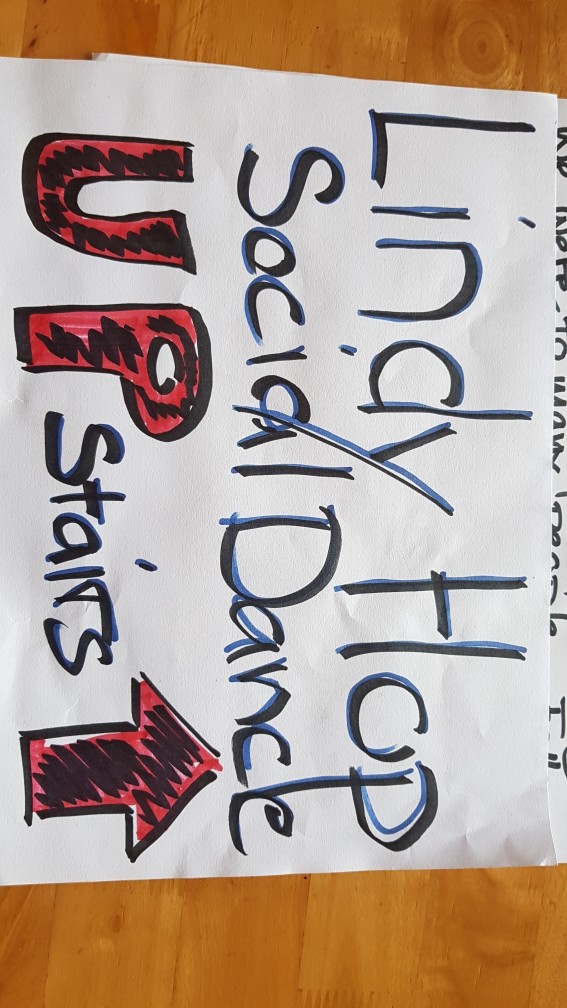 Lindy Hop
Social Dance
UPstairs